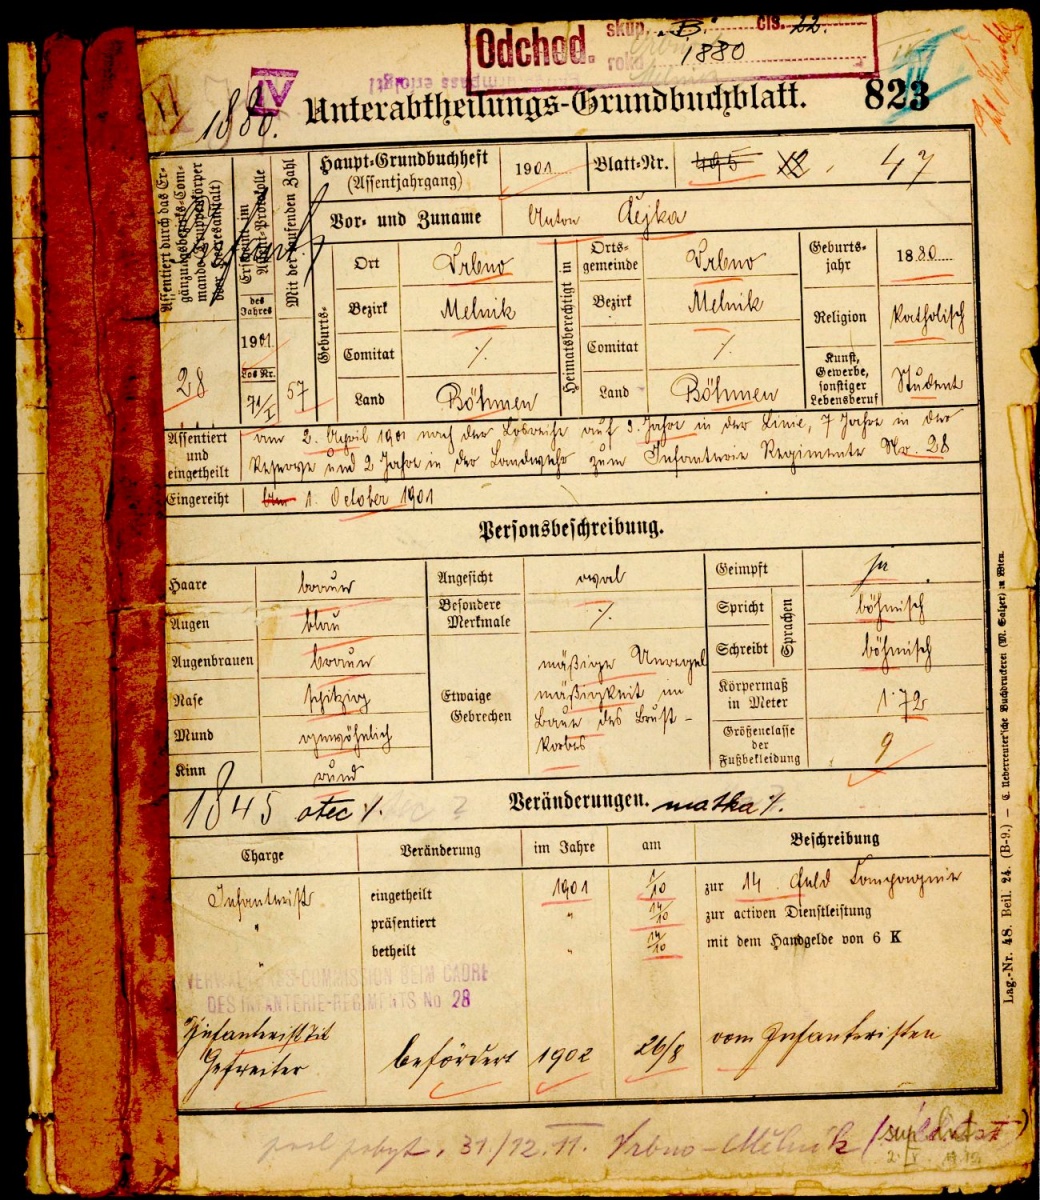 Odchod. skup. „B.“ čís. 22.
roku 1880
IV
1880.
Unterabtheilungs-Grundbuchblatt.
823
Assentiert durch das Er-
gänzungsbezirks-Com-
mando
28
Erscheint im
Assent-Protokolle
des
Jahres
1901
Los Nr.
71/I
Mit der laufenden Zahl
57
Haupt-Grundbuchheft
(Assentjahrgang)
1901
Blatt-Nr.
495
47
Vor- und Zuname
Anton Rejka
Geburts-
Ort Vrbno
Bezirk Melnik
Comitat ·/.
Land Böhmen
Heimatsberechtigt in
Orts-
gemeinde Vrbno
Bezirk Melnik
Comitat ·/.
Land Böhmen
Geburts-
jahr 1880
Religion katholisch
Kunst,
Gewerbe,
sonstiger
Lebensberuf
Student
Assentiert
und
eingetheilt
am 2. April 1901 nach der Losreihe auf 3 Jahre in der Linie, 7 Jahre in der
Reserve und 2 Jahre in der Landwehr zum Infanterie Regimente Nr. 28
Eingereiht 1. October 1901
Personsbeschreibung.
Haare braun
Augen blau
Augenbrauen braun
Nase spitzig
Mund gewöhnlich
Kinn rund
Angesicht oval
Besondere
Merkmale ·/.
Etwaige
Gebrechen
mäßige Unregel
mäßigkeit im
Baue des Brust-
korbes
Geimpft ja
Spricht böhmisch
Schreibt böhmisch
Sprachen
Körpermaß
in Meter 1·72
Größenclasse
der
Fußbekleidung 9
1845 otec ·/.
Veränderungen.
matka ·/.
Charge Veränderung im Jahre am Beschreibung
Infanterist eingetheilt 1901 1/10 zur 14. Feld Compagnie
" präsentiert " 14/10 zur activen Dienstleistung
" betheilt " 14/10 mit dem Handgelde von 6 K
COMMISSION BEIM CADRE
DES INFANTERIE-REGIMENTS No 28
Infanterist Tit
Gefreiter befördert 1902 26/8 vom Infanteristen
posl. pobyt. 31/12. 11. Vrbno-Mělník
Lag.-Nr. 48. Beil. 24. (B-9.) — C. Ueberreuter'sche Buchdruckerei (M. Salzer) in Wien.